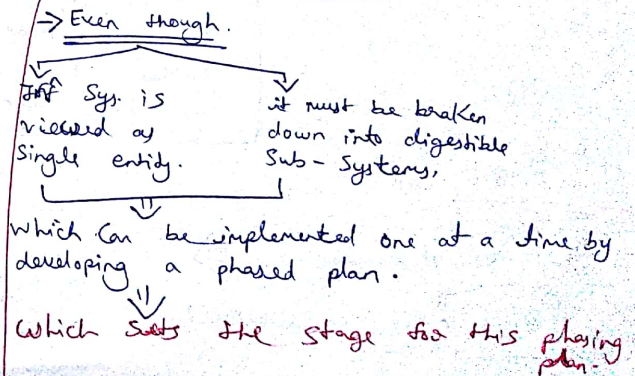 → Even though.
Inf Sys. is
viewed as
Single entity.
it must be broken
down into digestible
Sub - Systems,
which can be implemented one at a time by
developing a phased plan.
which sets the stage for this phasing
plan.